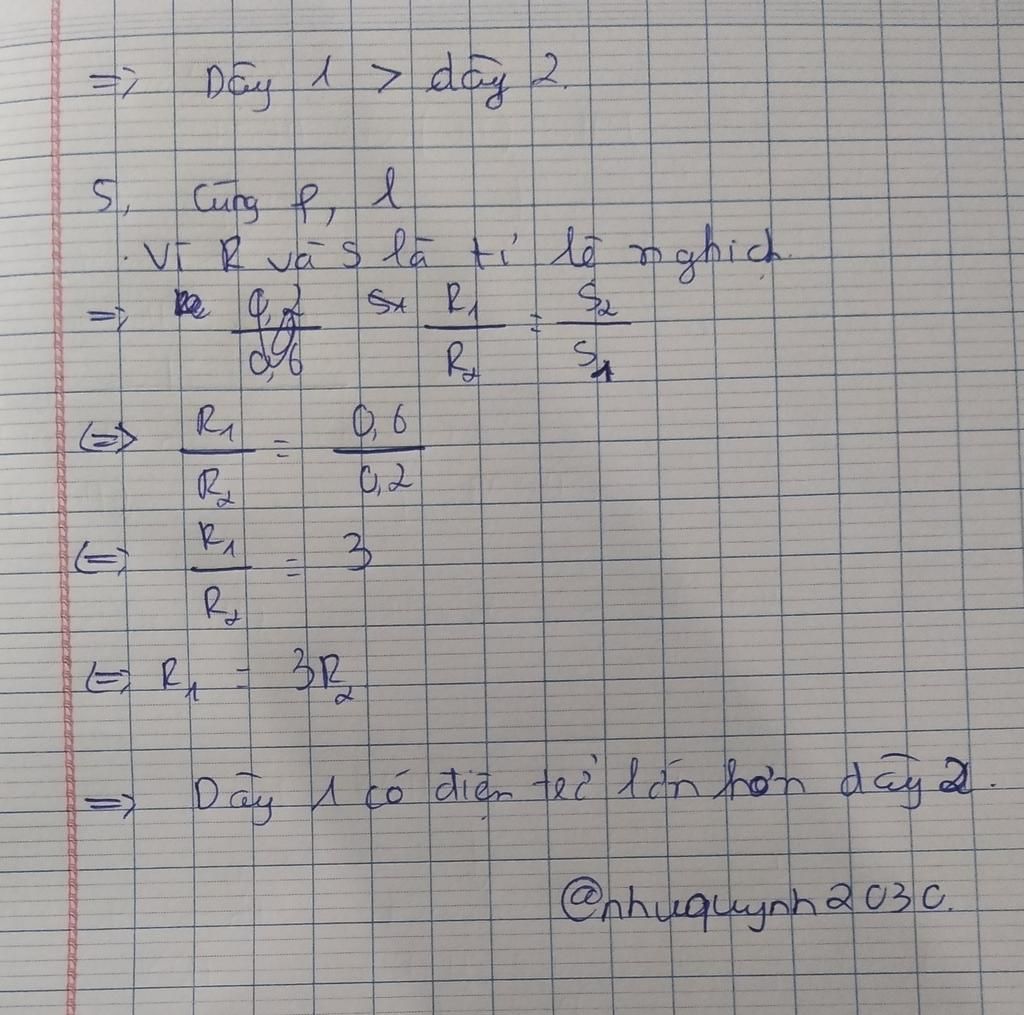 => Dây 1 > dây 2.
5, Cùng ρ, l
. Vì R và S là tỉ lệ nghịch.
=> R1/R2 = S2/S1
<=> R1/R2 = 0,6/0,2
<=> R1/R2 = 3
<=> R1 = 3R2
=> Dây 1 có điện trở lớn hơn dây 2.
@nhuquynh2030.